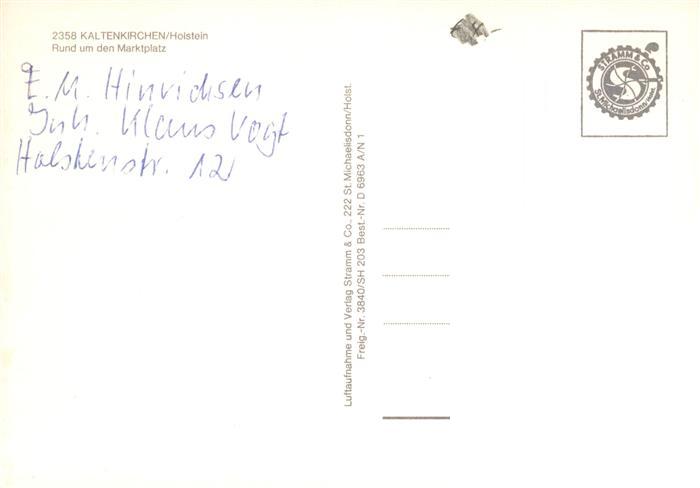 2358 KALTENKIRCHEN/Holstein
Rund um den Marktplatz
E. M. Hinrichsen
Inh. Klaus Vogt
Holstenstr. 12
Luftaufnahme und Verlag Stramm & Co., 222 St. Michaelisdonn/Holst.
Freig.-Nr. 3840/SH 203 Best.-Nr. D 6963 A/N 1
STRAMM & Co
St. Michaelisdonn/Holst.